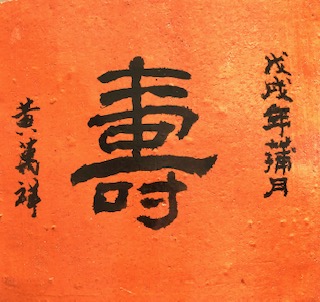 戊戌年蒲月
壽
黃萬祥